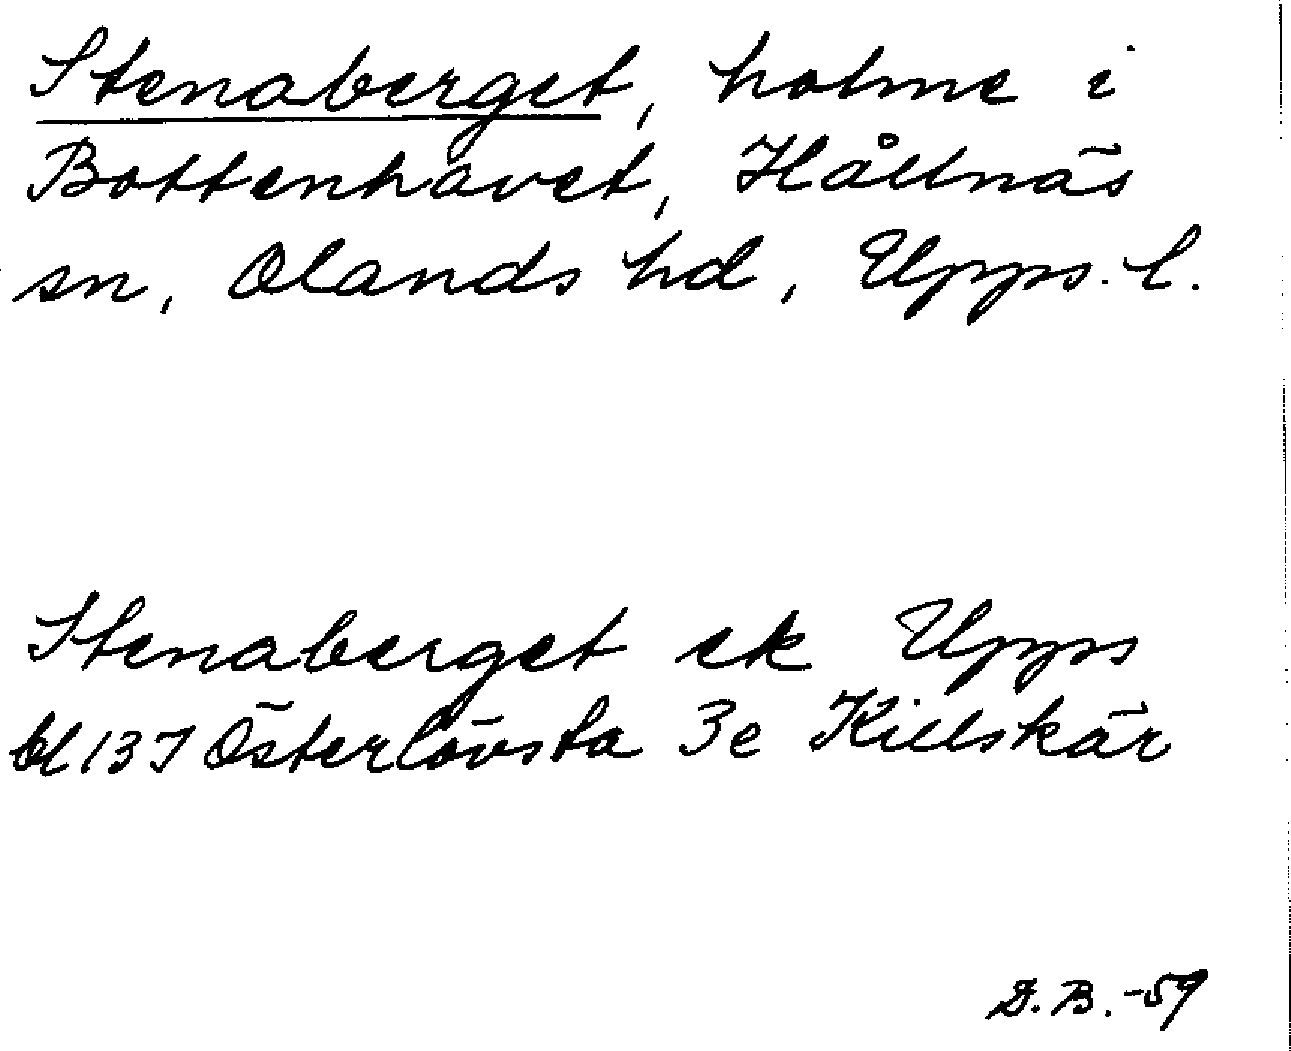 Stenaberget, holme i
Bottenhavet, Hållnäs
sn, Olands hd, Upps. l.
Stenaberget ek Upps
bl 137 Österlövsta 3e Killskär
D.B. -59